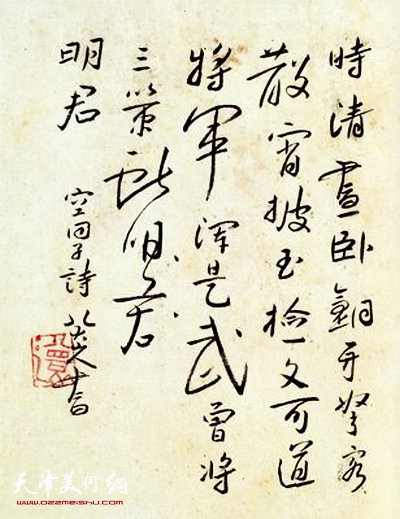 時清晝臥銅牙弩客
散宵披玉檢文可道
將軍渾是武曾將
三策獻明君
明君
空同子詩 八大山人書
天津美術網
www.022meishu.com